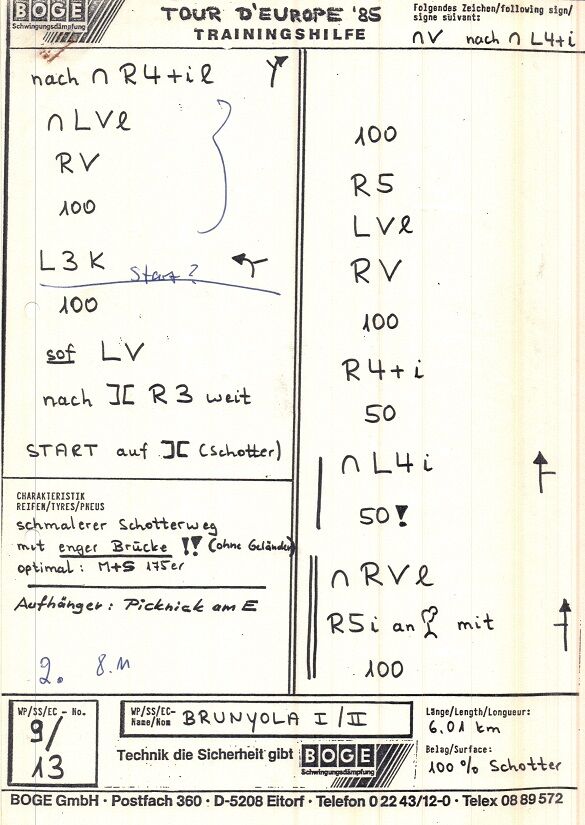 BOGE
Schwingungsdämpfung
TOUR D'EUROPE '85
TRAININGSHILFE
Folgendes Zeichen/following sign/
signe süivant:
∩V nach ∩ L4+i
nach ∩ R4+il
∩ LVl
RV
100
L3K
Start?
100
sof LV
nach ][ R3 weit
START auf ][ (Schotter)
CHARAKTERISTIK
REIFEN/TYRES/PNEUS
schmalerer Schotterweg
mit enger Brücke !! (ohne Geländer)
optimal: M+S 175er
Aufhänger: Picknick am E
2. 8.11
100
R5
LVl
RV
100
R4+i
50
∩ L4i
50!
∩ RVl
R5i an mit
100
WP/SS/EC - No.
9/
13
WP/SS/EC-
Name/Nom BRUNYOLA I/II
Länge/Length/Longueur:
6.01 km
Belag/Surface:
100 % Schotter
Technik die Sicherheit gibt BOGE
Schwingungsdämpfung
BOGE GmbH · Postfach 360 · D-5208 Eitorf · Telefon 0 22 43/12-0 · Telex 08 89 572